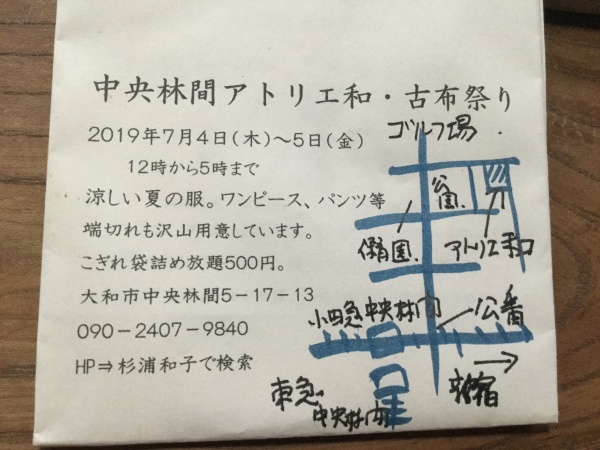 中央林間アトリエ和・古布祭り
2019年7月4日(木)～5日(金)
12時から5時まで
涼しい夏の服。ワンピース、パンツ等
端切れも沢山用意しています。
こぎれ袋詰め放題500円。
大和市中央林間5－17－13
090－2407－9840
HP⇒杉浦和子で検索
ゴルフ場
公園
保育園
アトリエ和
小田急中央林間
公番
新宿
東急
中央林間